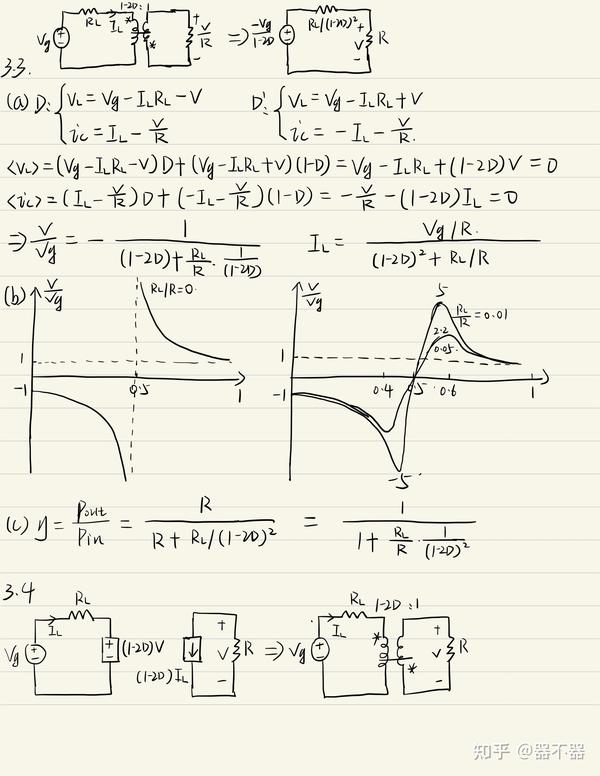 R_L I_L 1-2D:1
V_g * * + V/R - ⇒ -V_g/(1-2D) R_L/(1-2D)² + V - R
3.3.
(a) D: { V_L = V_g - I_L R_L - V D': { V_L = V_g - I_L R_L + V
i_c = I_L - V/R i_c = -I_L - V/R.
<V_L> = (V_g - I_L R_L - V) D + (V_g - I_L R_L + V)(1-D) = V_g - I_L R_L + (1-2D)V = 0
<i_c> = (I_L - V/R) D + (-I_L - V/R)(1-D) = -V/R - (1-2D) I_L = 0
⇒ V/V_g = - 1/((1-2D) + R_L/R · 1/(1-2D)) I_L = (V_g/R.)/((1-2D)² + R_L/R)
(b) V/V_g R_L/R=0. V/V_g 5 R_L/R = 0.01
2.2
0.05.
1 1
-1 0.5 1 -1 0.4 0.5 0.6 1
-5
(c) η = P_out/P_in = R/(R + R_L/(1-2D)²) = 1/(1 + R_L/R · 1/(1-2D)²)
3.4
R_L R_L 1-2D:1
I_L + I_L * +
V_g + - (1-2D)V V R ⇒ V_g V R
(1-2D)I_L - * -
知乎 @器不器